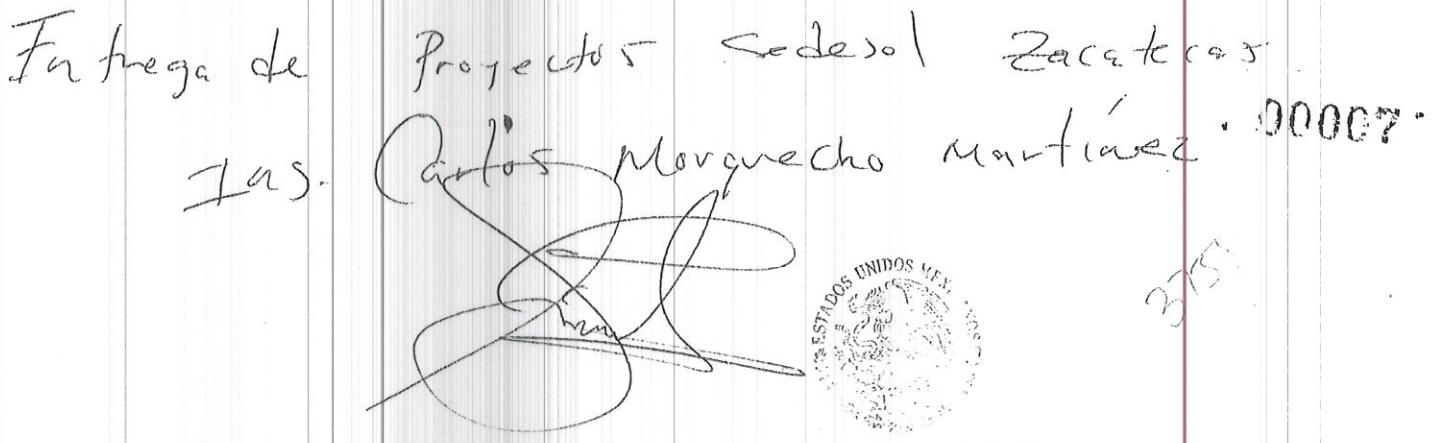 Entrega de Proyectos Sedesol Zacatecas
Ing. Carlos Morquecho Martínez
00007
ESTADOS UNIDOS MEX
375